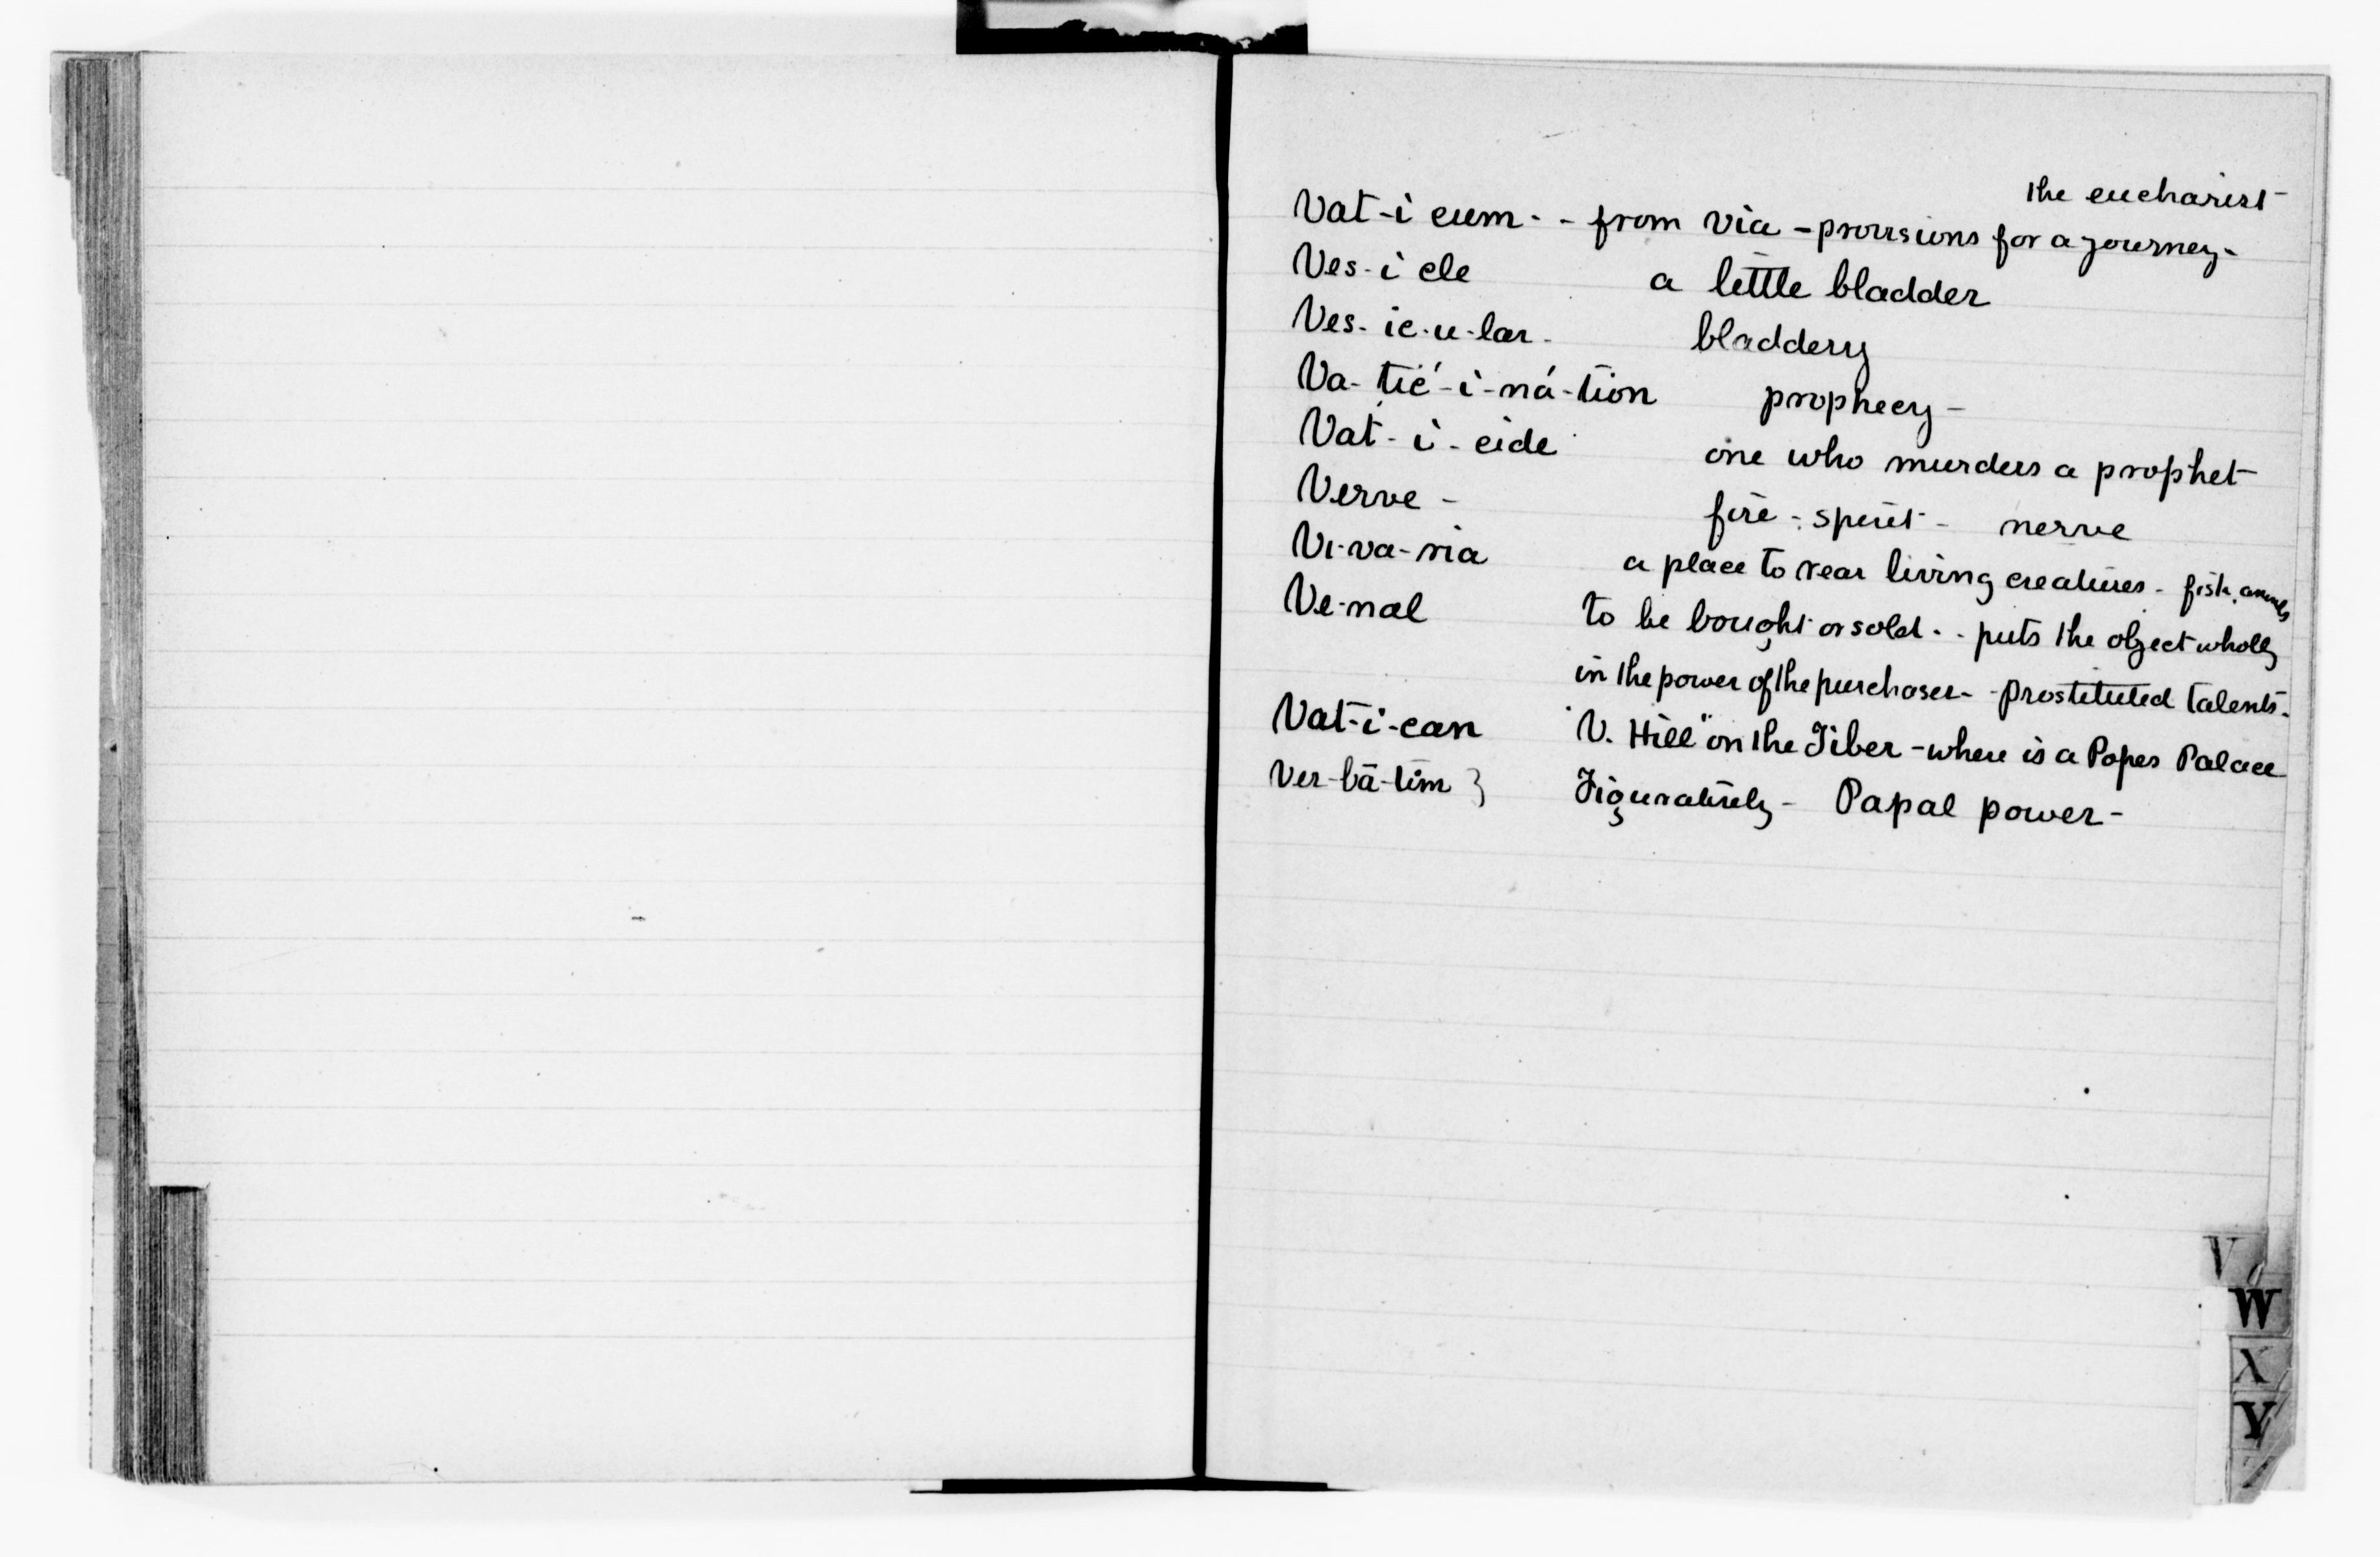 the eucharist -
Vat-i cum - - from via - provisions for a journey -
Ves-i cle a little bladder
Ves-ic-u-lar - bladdery
Va-tic´-i-ná-tion prophecy -
Vat-i-cide one who murders a prophet
Verve - fire - spirit - nerve
Vi-va-ria a place to rear living creatures - fish, animals
Ve-nal to be bought or sold - - puts the object wholly
in the power of the purchaser - - prostituted talents -
Vat-i-can "V. Hill" on the Tiber - where is a Popes Palace
Ver-bā-tim } Figuratively - Papal power -
V
W
X
Y